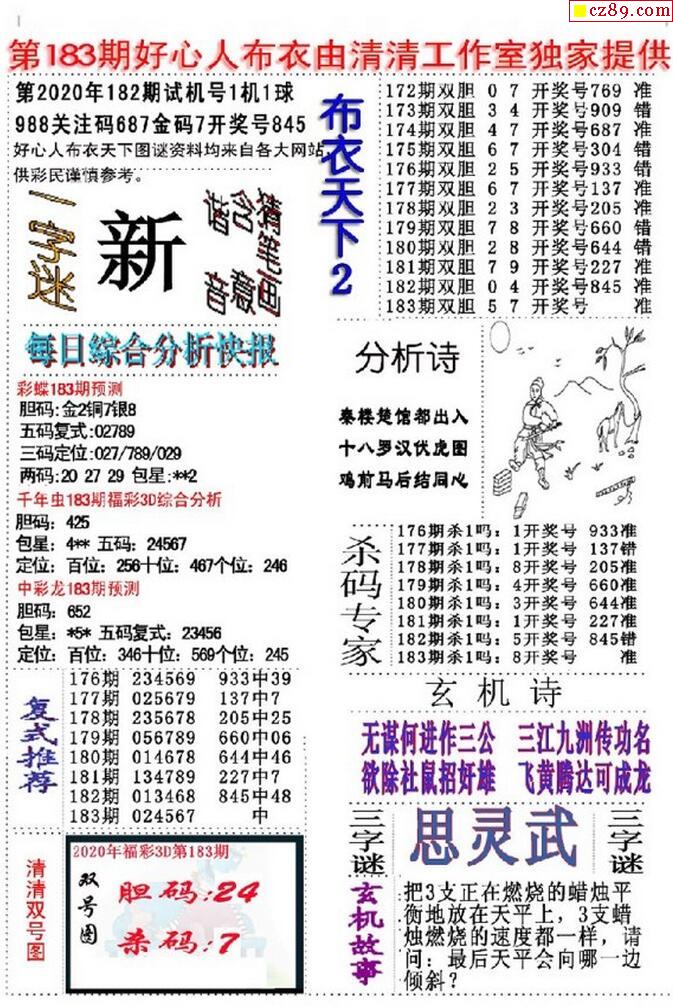 cz89.com
第183期好心人布衣由清清工作室独家提供
第2020年182期试机号1机1球
988关注码687金码7开奖号845
好心人布衣天下图谜资料均来自各大网站,
供彩民谨慎参考。
一字迷
新
猜含猪笔
音意画
布衣天下2
172期双胆 0 7 开奖号769 准
173期双胆 3 4 开奖号909 错
174期双胆 4 7 开奖号687 准
175期双胆 6 7 开奖号304 错
176期双胆 2 5 开奖号933 错
177期双胆 6 7 开奖号137 准
178期双胆 2 3 开奖号205 准
179期双胆 7 8 开奖号660 错
180期双胆 2 8 开奖号644 错
181期双胆 7 9 开奖号227 准
182期双胆 0 4 开奖号845 准
183期双胆 5 7 开奖号 准
每日综合分析快报
彩蝶183期预测
胆码:金2铜7银8
五码复式:02789
三码定位:027/789/029
两码:20 27 29 包星:**2
千年虫183期福彩3D综合分析
胆码: 425
包星: 4** 五码: 24567
定位: 百位: 256十位: 467个位: 246
中彩龙183期预测
胆码: 652
包星: *5* 五码复式: 23456
定位: 百位: 346十位: 569个位: 245
分析诗
秦楼楚馆都出入
十八罗汉伏虎图
鸡前马后结同心
杀码专家
176期杀1吗: 1开奖号 933准
177期杀1吗: 1开奖号 137错
178期杀1吗: 8开奖号 205准
179期杀1吗: 4开奖号 660准
180期杀1吗: 3开奖号 644准
181期杀1吗: 1开奖号 227准
182期杀1吗: 5开奖号 845错
183期杀1吗: 8开奖号 准
复式推荐
176期 234569 933中39
177期 025679 137中7
178期 235678 205中25
179期 056789 660中06
180期 014678 644中46
181期 134789 227中7
182期 013468 845中48
183期 024567 中
玄机诗
无谋何进作三公 三江九洲传功名
欲除社鼠招奸雄 飞黄腾达可成龙
三字谜
思灵武
三字谜
清清双号图
2020年福彩3D第183期
双号图
胆码:24
杀码:7
玄机故事
把3支正在燃烧的蜡烛平
衡地放在天平上，3支蜡
烛燃烧的速度都一样，请
问：最后天平会向哪一边
倾斜？